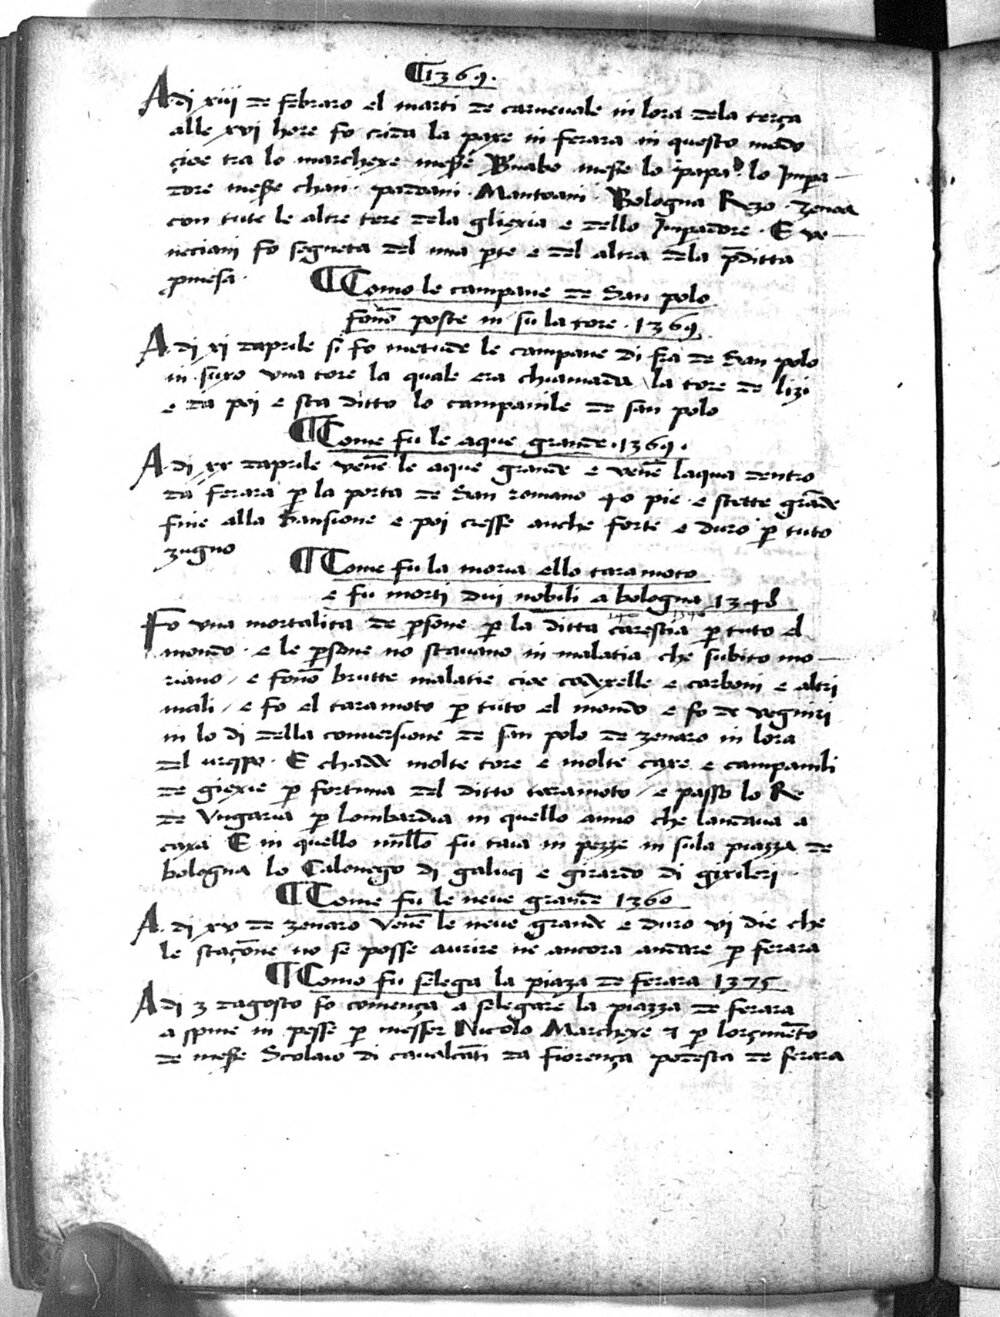 ¶ 1369.
A di xiij de febraro el marti de carnevale in lora dela terça
alle xvi hore fo crida la paxe in ferara in questo modo
çioe tra lo marchexe meſſe Bnabo meſſe lo papa lo Impa
dore meſſe chan. padoani. Mantoani. Bologna Rezo. zenoa
con tute le altre tere dela gliexia e dello Impadore. E ve
neciani fo segneta del una pte e del altra dela pditta
pmesa.
¶ Como le campane de San polo
fono poste in su la tore. 1369
A di xi daprile si fo metude le campane di fra de San polo
in suxo una tore la quale era chiamada la tore de lizi
e da poi e sta ditto lo campanile de san polo
¶ Come fu le aque grande. 1369.
A di xx daprile vene le aque grande e vene laqua dentro
da ferara p la porta de San romano 40 pie e stette grade
fine alla Sansione e poi cresse anche forte e duro p tuto
zugno
¶ Come fu la moria ello taramoto
e fu morti dui nobili a bologna 1348
Fo una mortalita de psone p la ditta carestia p tuto el
mondo. e le psone no stavano in malatia che subito mo
riano / e fono brutte malatie cioe codexelle e carboni e altri
mali / e fo el taramoto p tuto el mondo e fo de vegniri
in lo di della conversione de san polo de zenaro in lora
del vrespo. E chadde molte tore e molte caxe e campanili
de giexie p fortuna del ditto taramoto / e passo lo Re
de Ungaria p lombardia in quello anno che landava a
caxa E in quello milleo fu taia in pezze in sula piazza de
bologna lo Calonego di galuci e girardo di gixileri
¶ Come fu le neve grande 1360
A di xv de zenaro vene le neve grande e duro vi die che
le staçone no se posse avrire ne ancora andare p ferara
¶ Como fu selega la piaza de ferara 1375
A di 3 dagosto fo comença a selegare la piazza de ferara
a spine in pesse p messer Nicolo Marchexe & p lorçimeto
de meſſe Scolaio di cavalcati da fiorença podesta de ferara